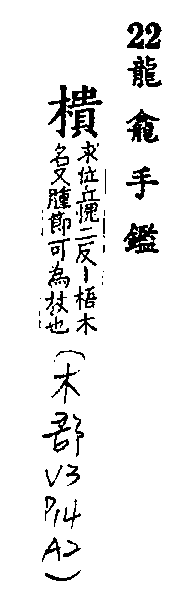 22龍龕手鑑
樻求位丘愧二反丨椐木
名又腫節可為杖也
(木部
V3
P14
A2)